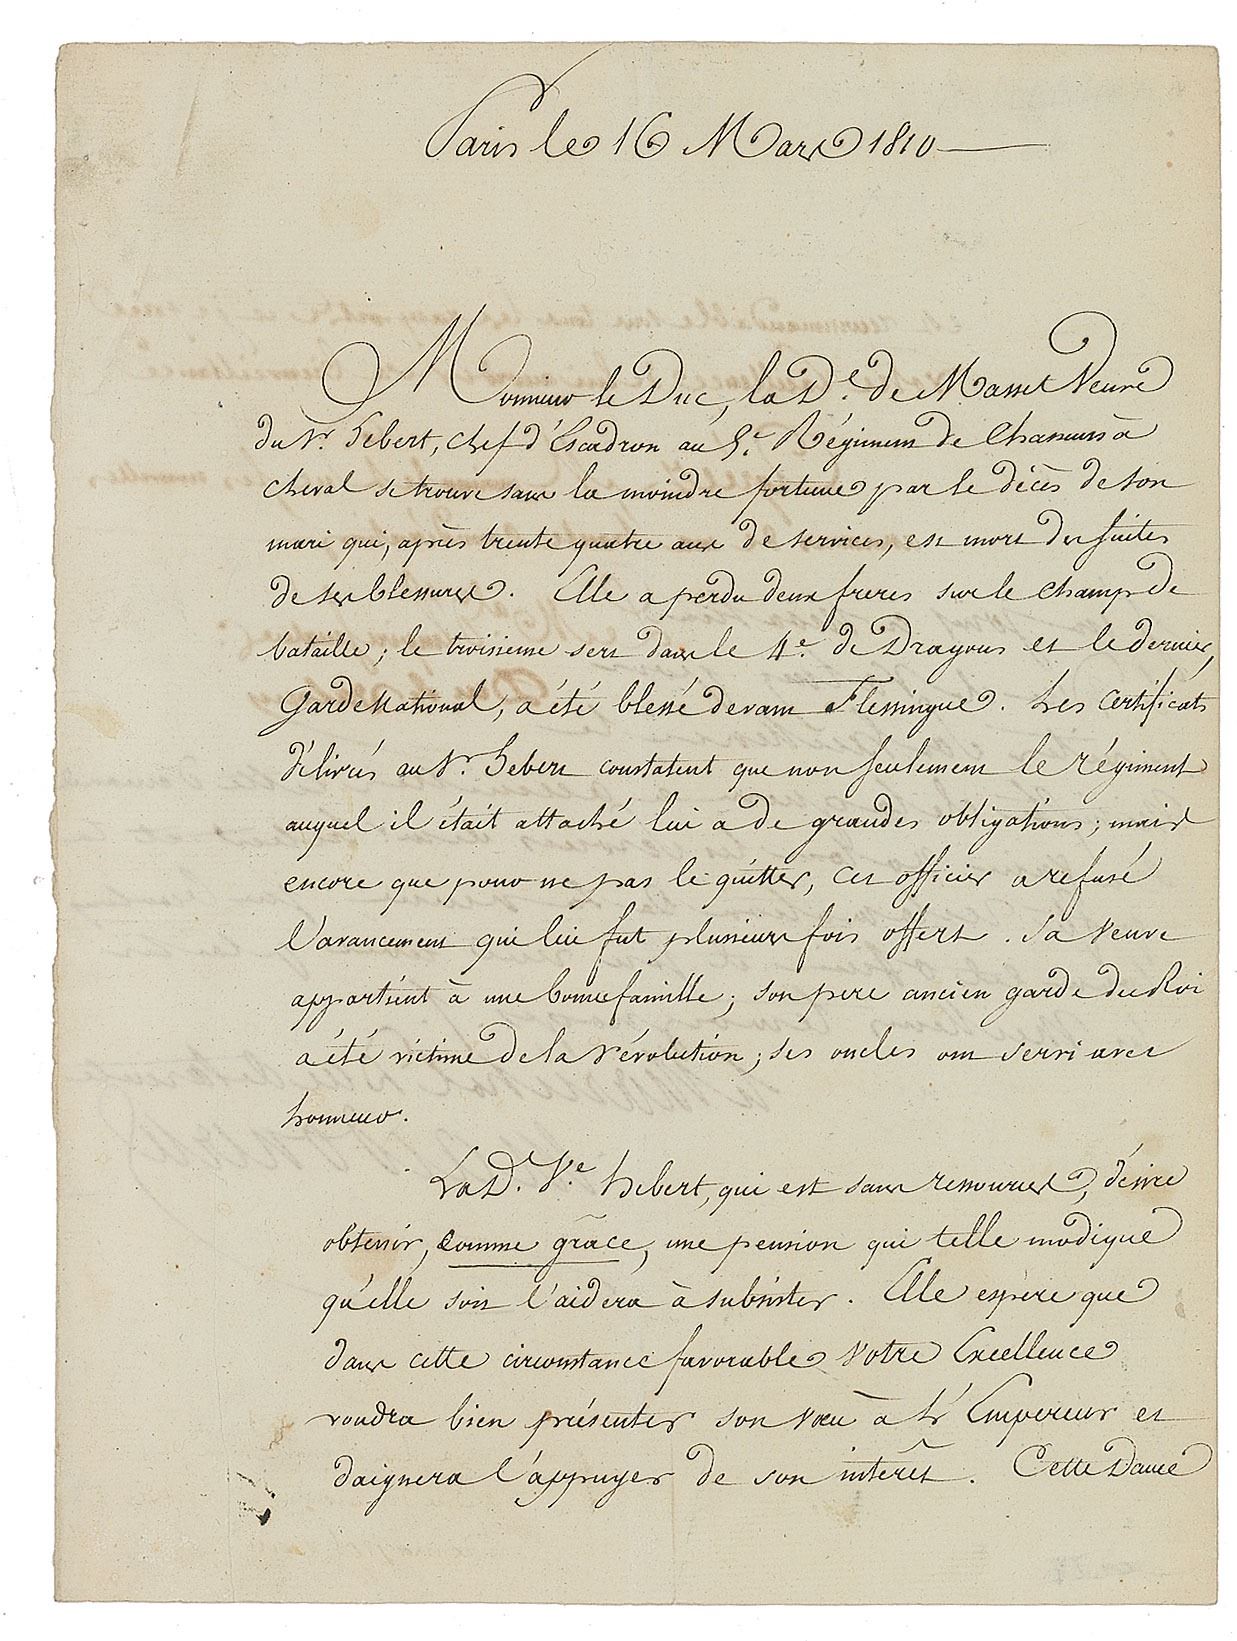 Paris le 16 Mars 1810
Monsieur le Duc, la De. de Masset Veuve
du Sr. hebert, chef d'Escadron au 5e. Régiment de Chasseurs à
cheval se trouve sans la moindre fortune par le décès de son
mari qui, après trente quatre ans de services, est mort des suites
de ses blessures. Elle a perdu deux freres sur le champ de
bataille; le troisieme sert dans le 4e. de Dragons et le dernier,
Garde National, a été blessé devant Flessingue. Les certificats
délivrés au Sr. hebert constatent que non seulement le régiment
auquel il était attaché lui a de grandes obligations; mais
encore que pour ne pas le quitter, cet officier a refusé
l'avancement qui lui fut plusieurs fois offert. Sa Veuve
appartient à une bonne famille; son pere ancien garde du Roi
a été victime de la révolution; ses oncles ont servi avec
honneur.
La D. Ve. hebert, qui est sans ressources, désire
obtenir, comme grâce, une pension qui telle modique
qu'elle soit l'aidera à subsister. Elle espère que
dans cette circonstance favorable Votre Excellence
voudra bien présenter son voeu à l'Empereur et
daignera l'appuyer de son intérêt. Cette Dame